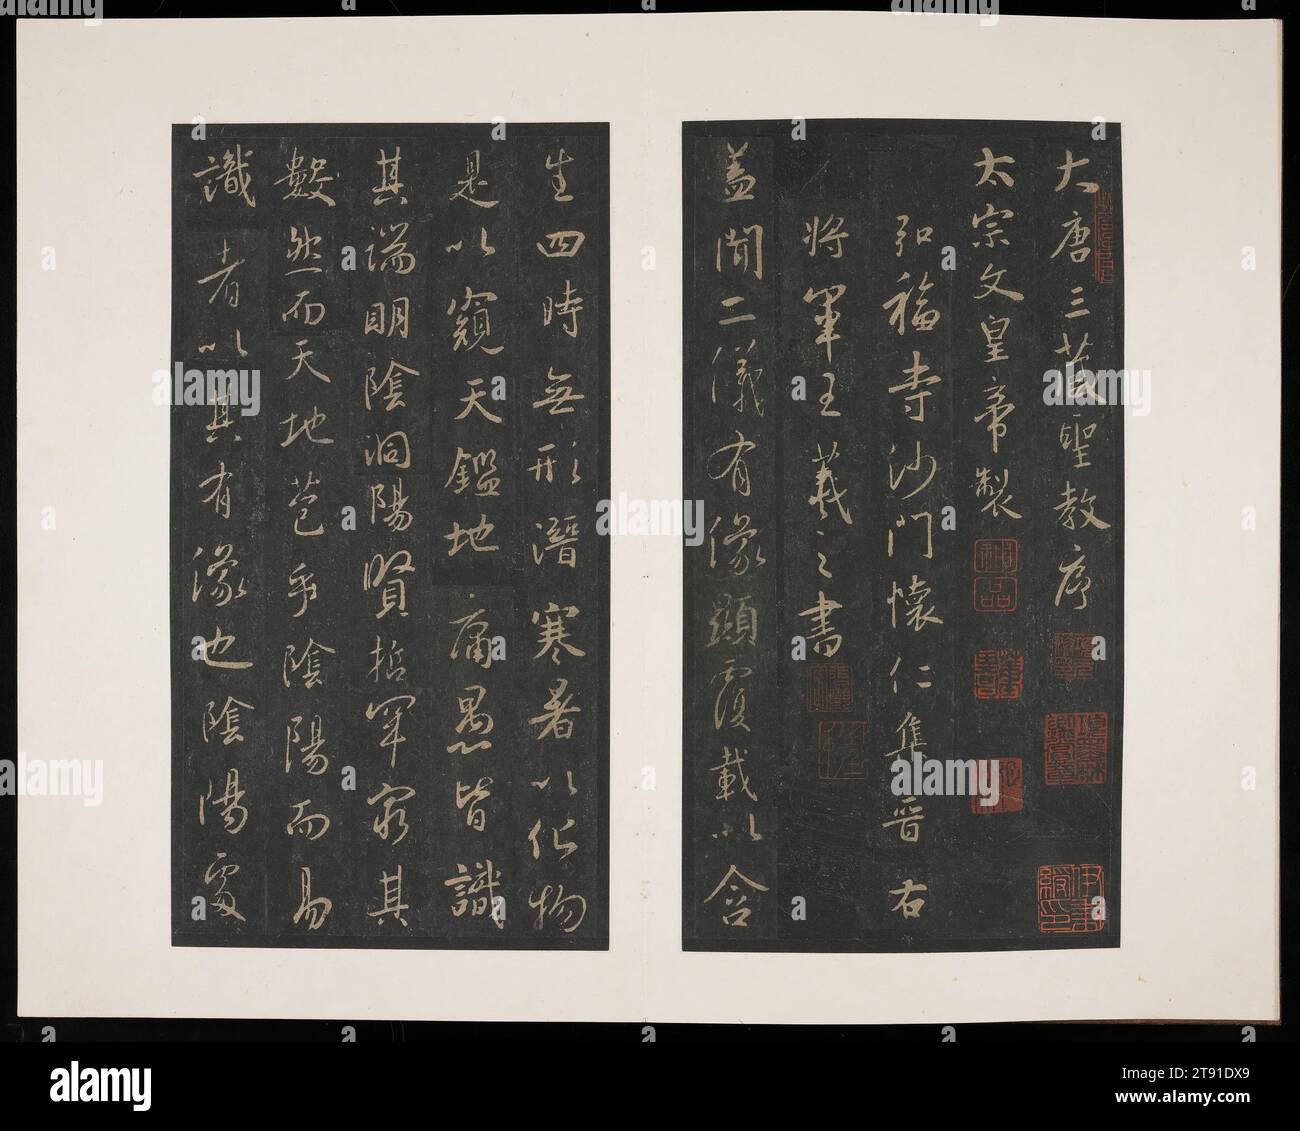 大唐三藏聖教序
太宗文皇帝製
弘福寺沙門懷仁集晉右
將軍王羲之書
蓋聞二儀有像顯覆載以含
生四時無形潛寒暑以化物
是以窺天鑑地庸愚皆識
其端明陰洞陽賢哲罕窮其
數然而天地苞乎陰陽而易
識者以其有像也陰陽處
alamy
Image ID: 2T91DX9
www.alamy.com